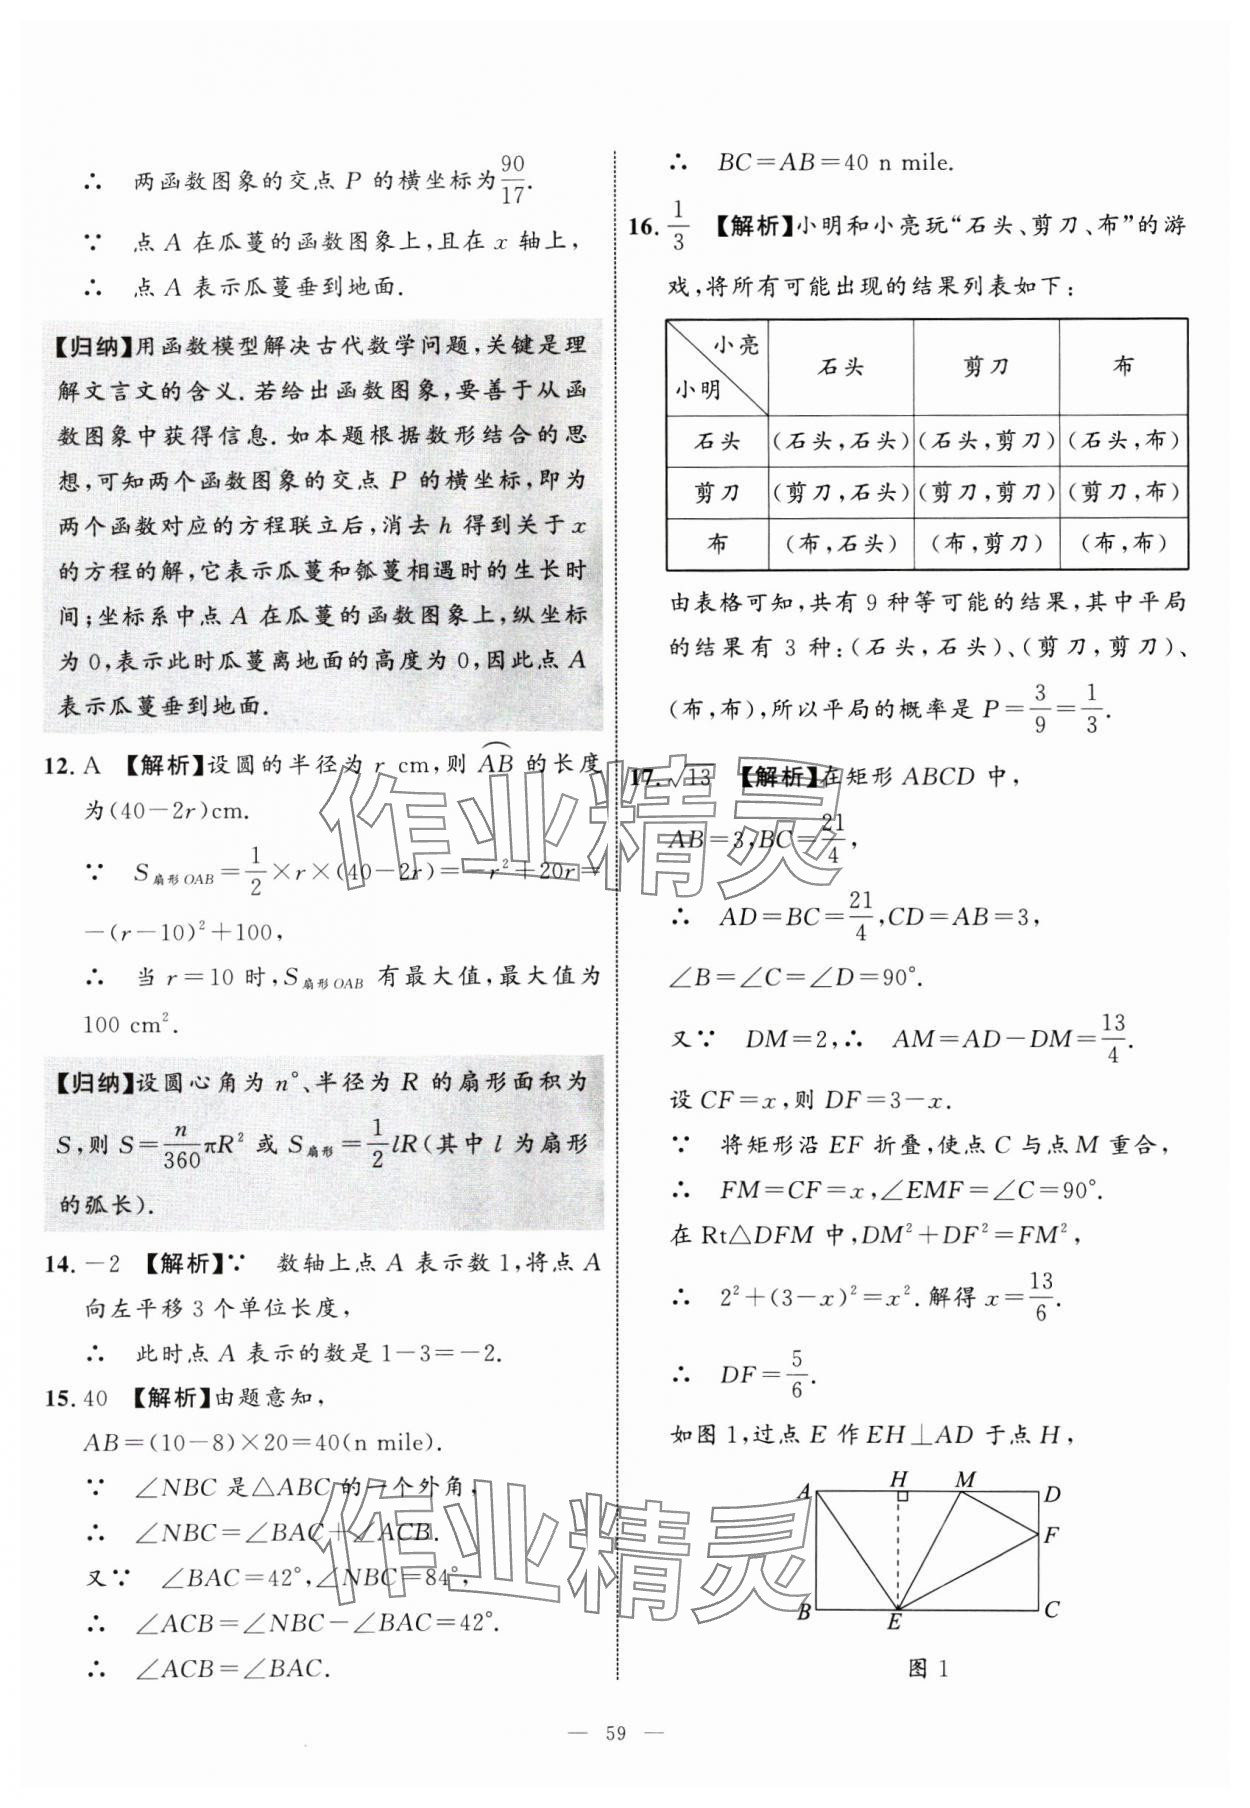 ∴ 两函数图象的交点 P 的横坐标为90/17.
∵ 点 A 在瓜蔓的函数图象上,且在 x 轴上,
∴ 点 A 表示瓜蔓垂到地面.
【归纳】用函数模型解决古代数学问题,关键是理
解文言文的含义.若给出函数图象,要善于从函
数图象中获得信息.如本题根据数形结合的思
想,可知两个函数图象的交点 P 的横坐标,即为
两个函数对应的方程联立后,消去 h 得到关于 x
的方程的解,它表示瓜蔓和瓠蔓相遇时的生长时
间;坐标系中点 A 在瓜蔓的函数图象上,纵坐标
为 0,表示此时瓜蔓离地面的高度为 0,因此点 A
表示瓜蔓垂到地面.
12. A 【解析】设圆的半径为 r cm,则 ⌒AB 的长度
为(40-2r)cm.
∵ S扇形OAB=1/2×r×(40-2r)=-r²+20r=
-(r-10)²+100,
∴ 当 r=10 时,S扇形OAB 有最大值,最大值为
100 cm².
【归纳】设圆心角为 n°、半径为 R 的扇形面积为
S,则 S=n/360 πR² 或 S扇形=1/2 lR(其中 l 为扇形
的弧长).
14. -2 【解析】∵ 数轴上点 A 表示数 1,将点 A
向左平移 3 个单位长度,
∴ 此时点 A 表示的数是 1-3=-2.
15. 40 【解析】由题意知,
AB=(10-8)×20=40(n mile).
∵ ∠NBC 是△ABC 的一个外角,
∴ ∠NBC=∠BAC+∠ACB.
又∵ ∠BAC=42°,∠NBC=84°,
∴ ∠ACB=∠NBC-∠BAC=42°.
∴ ∠ACB=∠BAC.
∴ BC=AB=40 n mile.
16. 1/3 【解析】小明和小亮玩“石头、剪刀、布”的游
戏,将所有可能出现的结果列表如下:
小亮 小明 石头 剪刀 布
石头 (石头,石头) (石头,剪刀) (石头,布)
剪刀 (剪刀,石头) (剪刀,剪刀) (剪刀,布)
布 (布,石头) (布,剪刀) (布,布)
由表格可知,共有 9 种等可能的结果,其中平局
的结果有 3 种:(石头,石头)、(剪刀,剪刀)、
(布,布),所以平局的概率是 P=3/9=1/3.
17. √13 【解析】在矩形 ABCD 中,
AB=3,BC=21/4,
∴ AD=BC=21/4,CD=AB=3,
∠B=∠C=∠D=90°.
又∵ DM=2,∴ AM=AD-DM=13/4.
设 CF=x,则 DF=3-x.
∵ 将矩形沿 EF 折叠,使点 C 与点 M 重合,
∴ FM=CF=x,∠EMF=∠C=90°.
在 Rt△DFM 中,DM²+DF²=FM²,
∴ 2²+(3-x)²=x².解得 x=13/6.
∴ DF=5/6.
如图 1,过点 E 作 EH⊥AD 于点 H,
A H M D
F
B E C
图 1
— 59 —
作业精灵
作业精灵